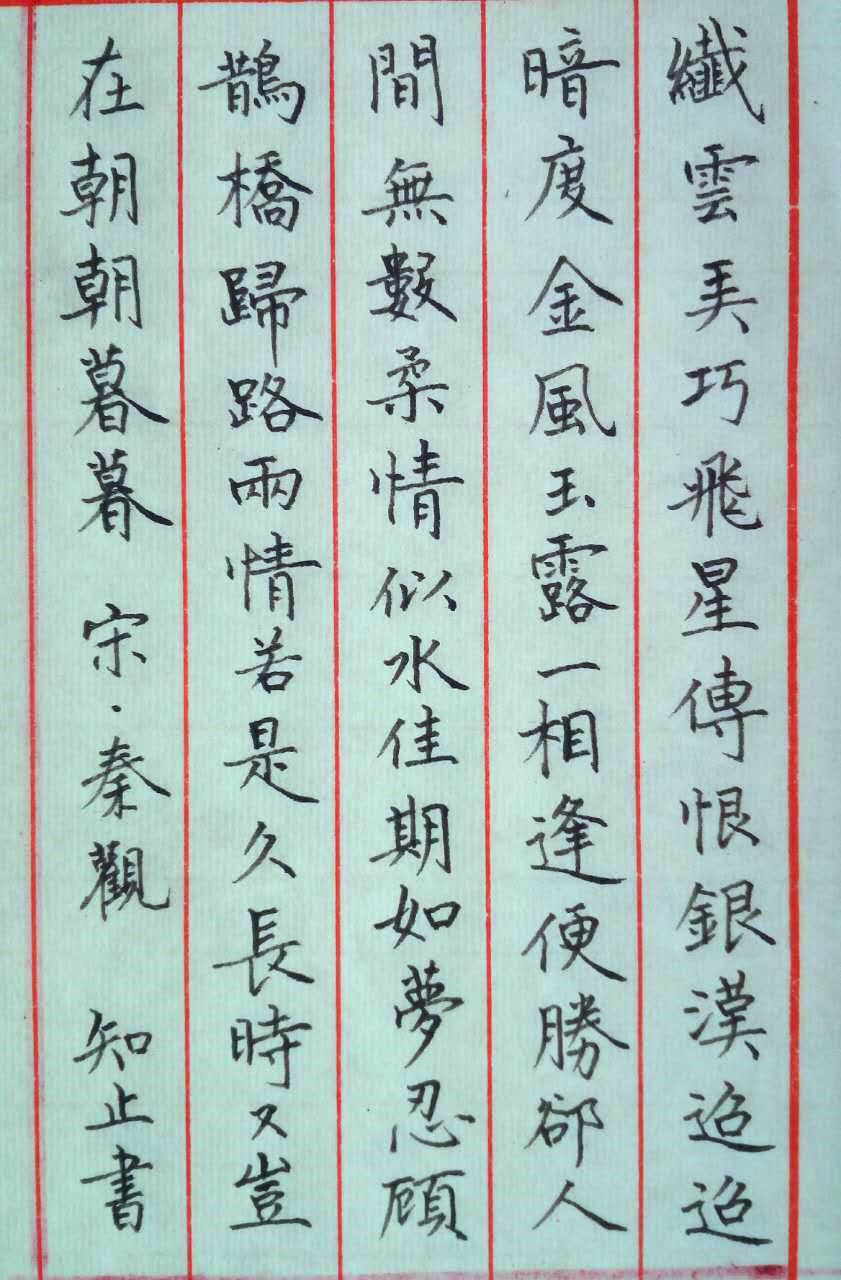 纖雲弄巧飛星傳恨銀漢迢迢
暗度金風玉露一相逢便勝郤人
間無數柔情似水佳期如夢忍顧
鵲橋歸路兩情若是久長時又豈
在朝朝暮暮 宋·秦觀 知止書